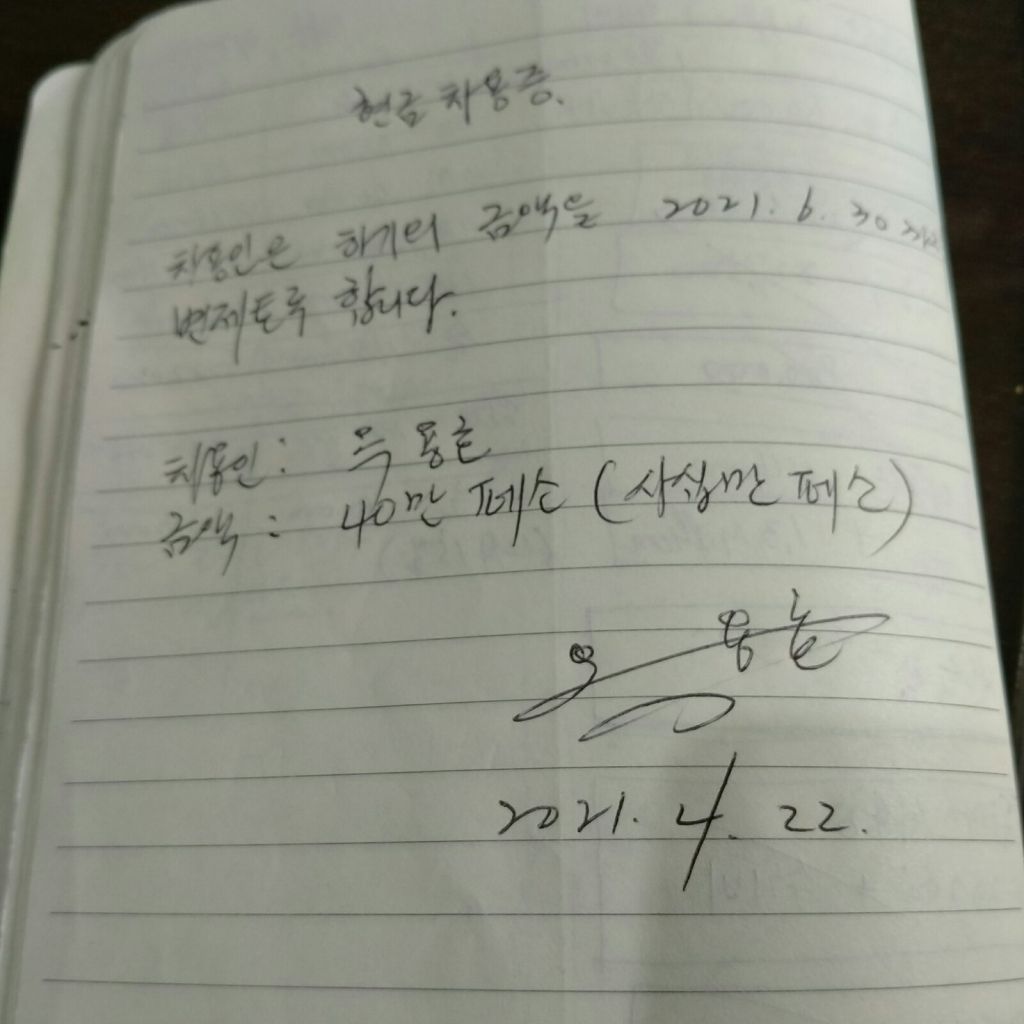 현금 차용증.
차용인은 하기의 금액을 2021. 6. 30 까지
변제토록 합니다.
차용인:
금액: 40만 페소 (사십만 페소)
2021. 4. 22.